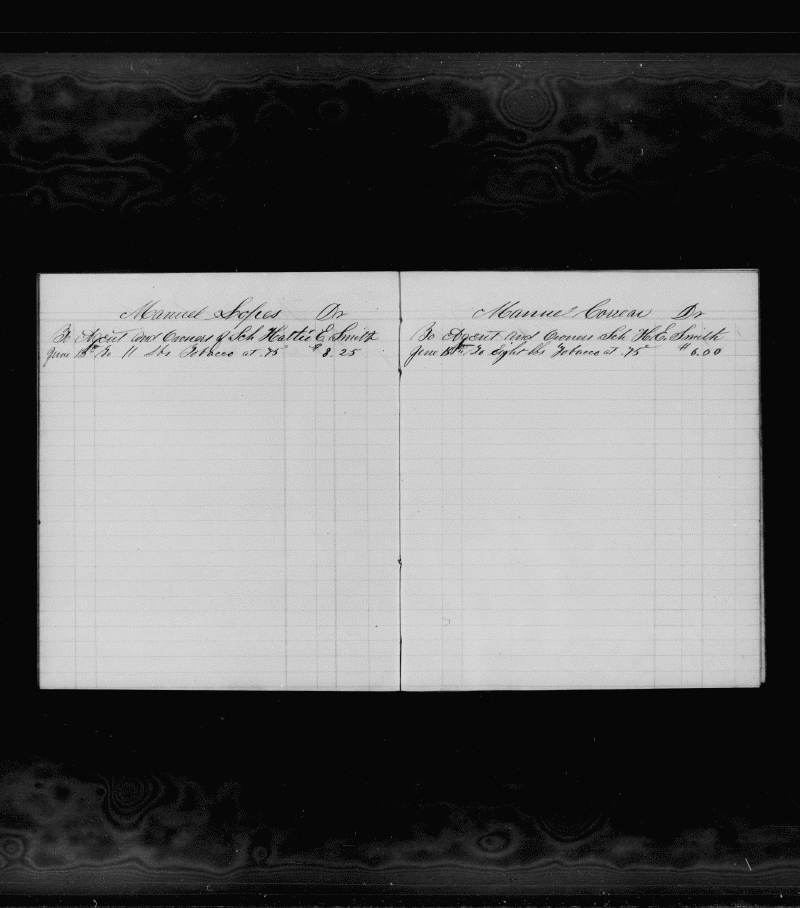 Manuel Lopes Dr
To Agent and Owners of Sch Hattie E. Smith
June 15th To 11 Lbs Tobacco at .75 $8.25
Manuel Correa Dr
To Agent and Owners Sch H. E. Smith
June 15th To Eight lbs Tobacco at .75 $6.00